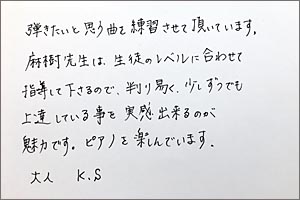 弾きたいと思う曲を練習させて頂いています。
麻樹先生は、生徒のレベルに合わせて
指導して下さるので、判り易く、少しずつでも
上達している事を実感出来るのが
魅力です。ピアノを楽しんでいます。
大人 K.S